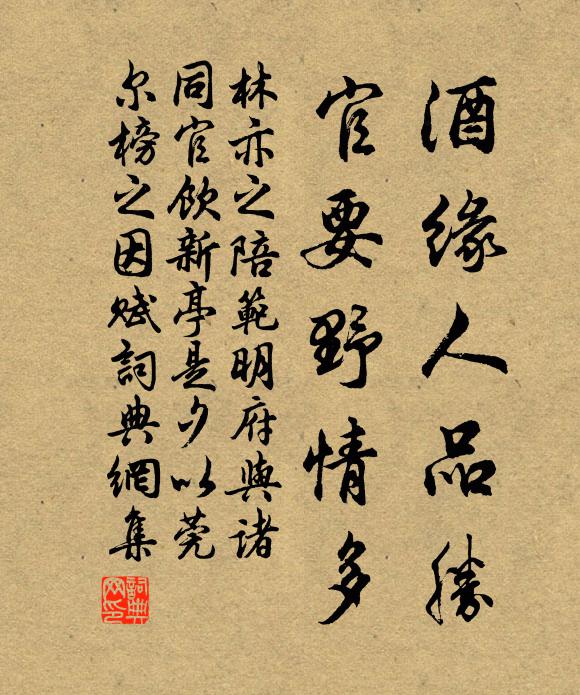 酒缘人品勝
官要野情多
林亦之陪範明府與諸
同官飲新亭是夕以莞
尔榜之因赋詞典網集
詞典
网印